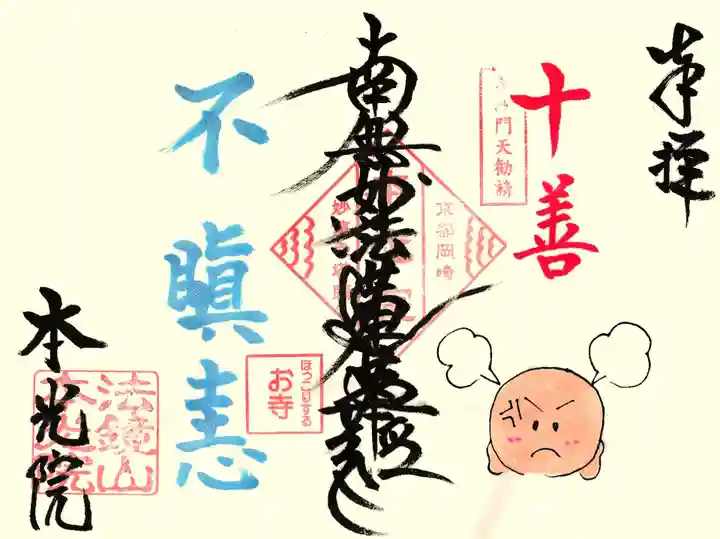 奉拝
十善
門天勧請
京都岡崎
南無妙法蓮華経
不瞋恚
ほっこりする
お寺
本光院
法鏡山